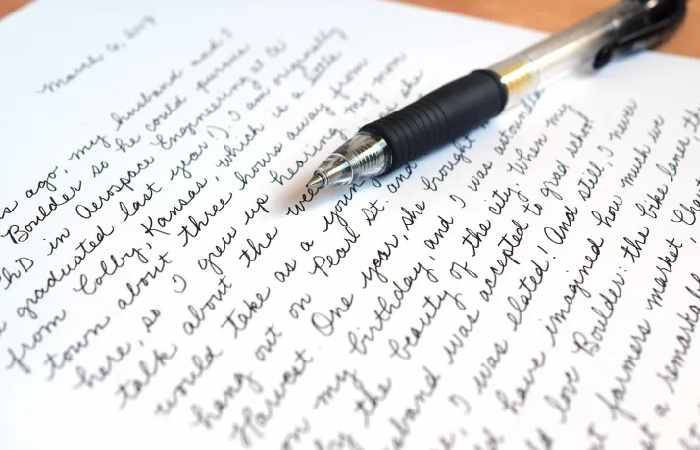 March 6, 2019
ago, my husband and I
Boulder so he could pursue
PhD in Aerospace Engineering at
graduated last year!). I am originally
from Colby, Kansas, which is a little
town about three hours away from
here, so I grew up hearing my mom
talk about the she
would take as a young
hang out on Pearl St. and
Harvest. One year, she brought
on my birthday, and I was astounded
by the beauty of the city. When my
husband was accepted to grad school
I was elated! And still, I
have imagined how much
love Boulder: the bike lanes
farmers market
a